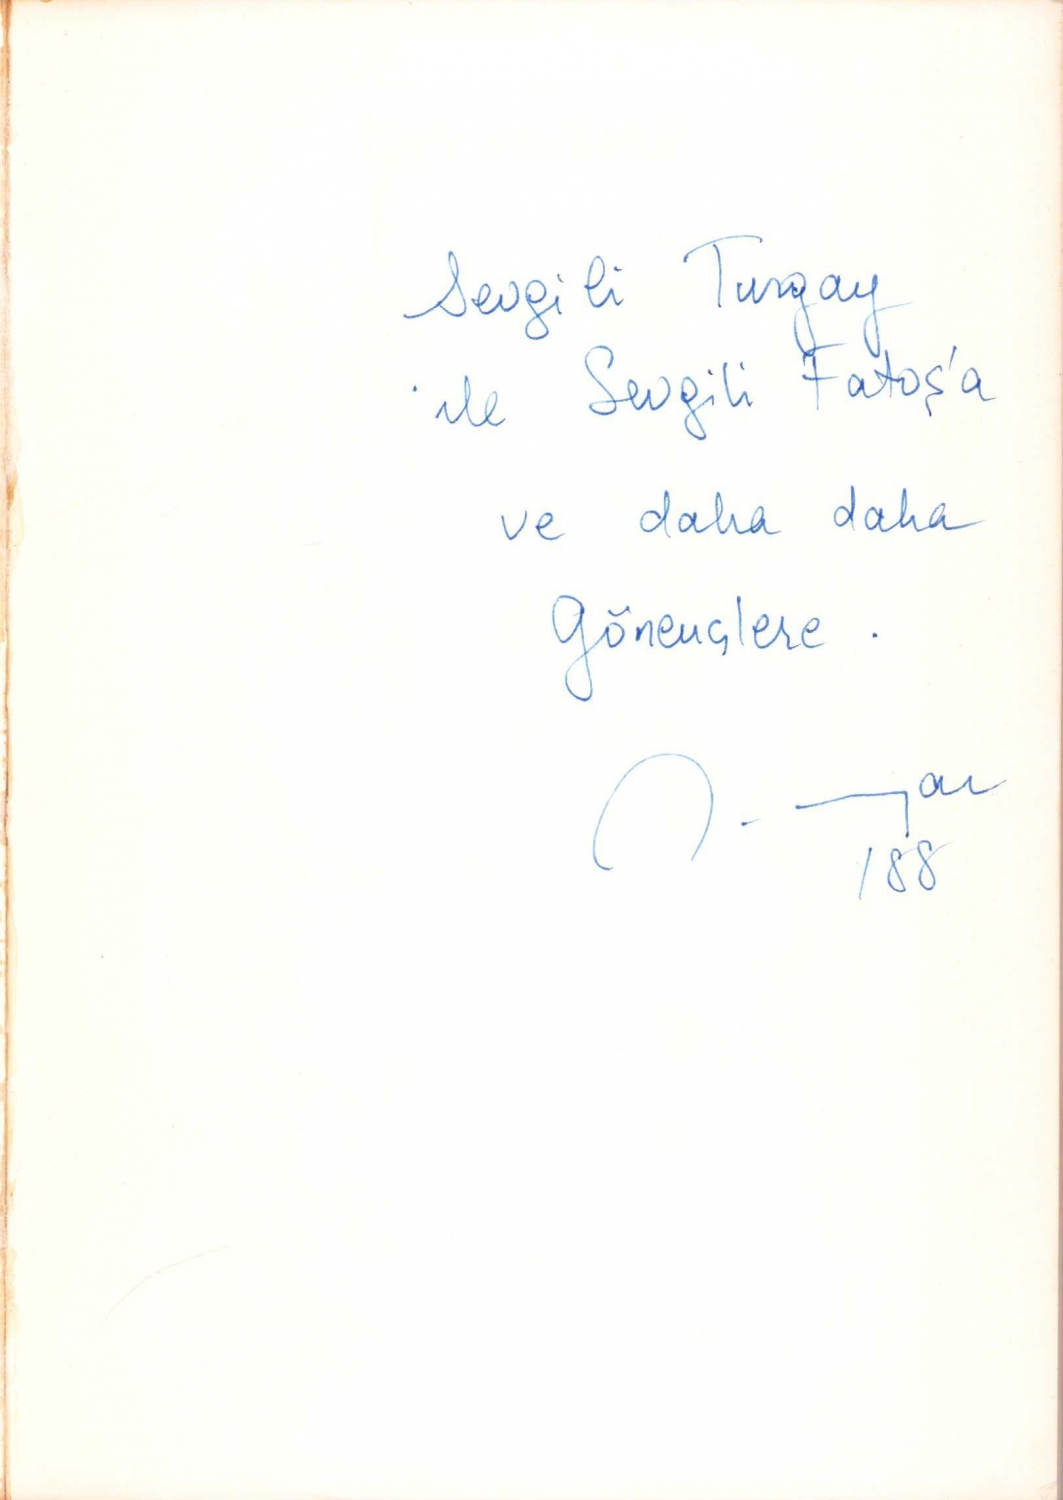 Sevgili Turgay
ile Sevgili Fatoş'a
ve daha daha
Gönençlere.
/88